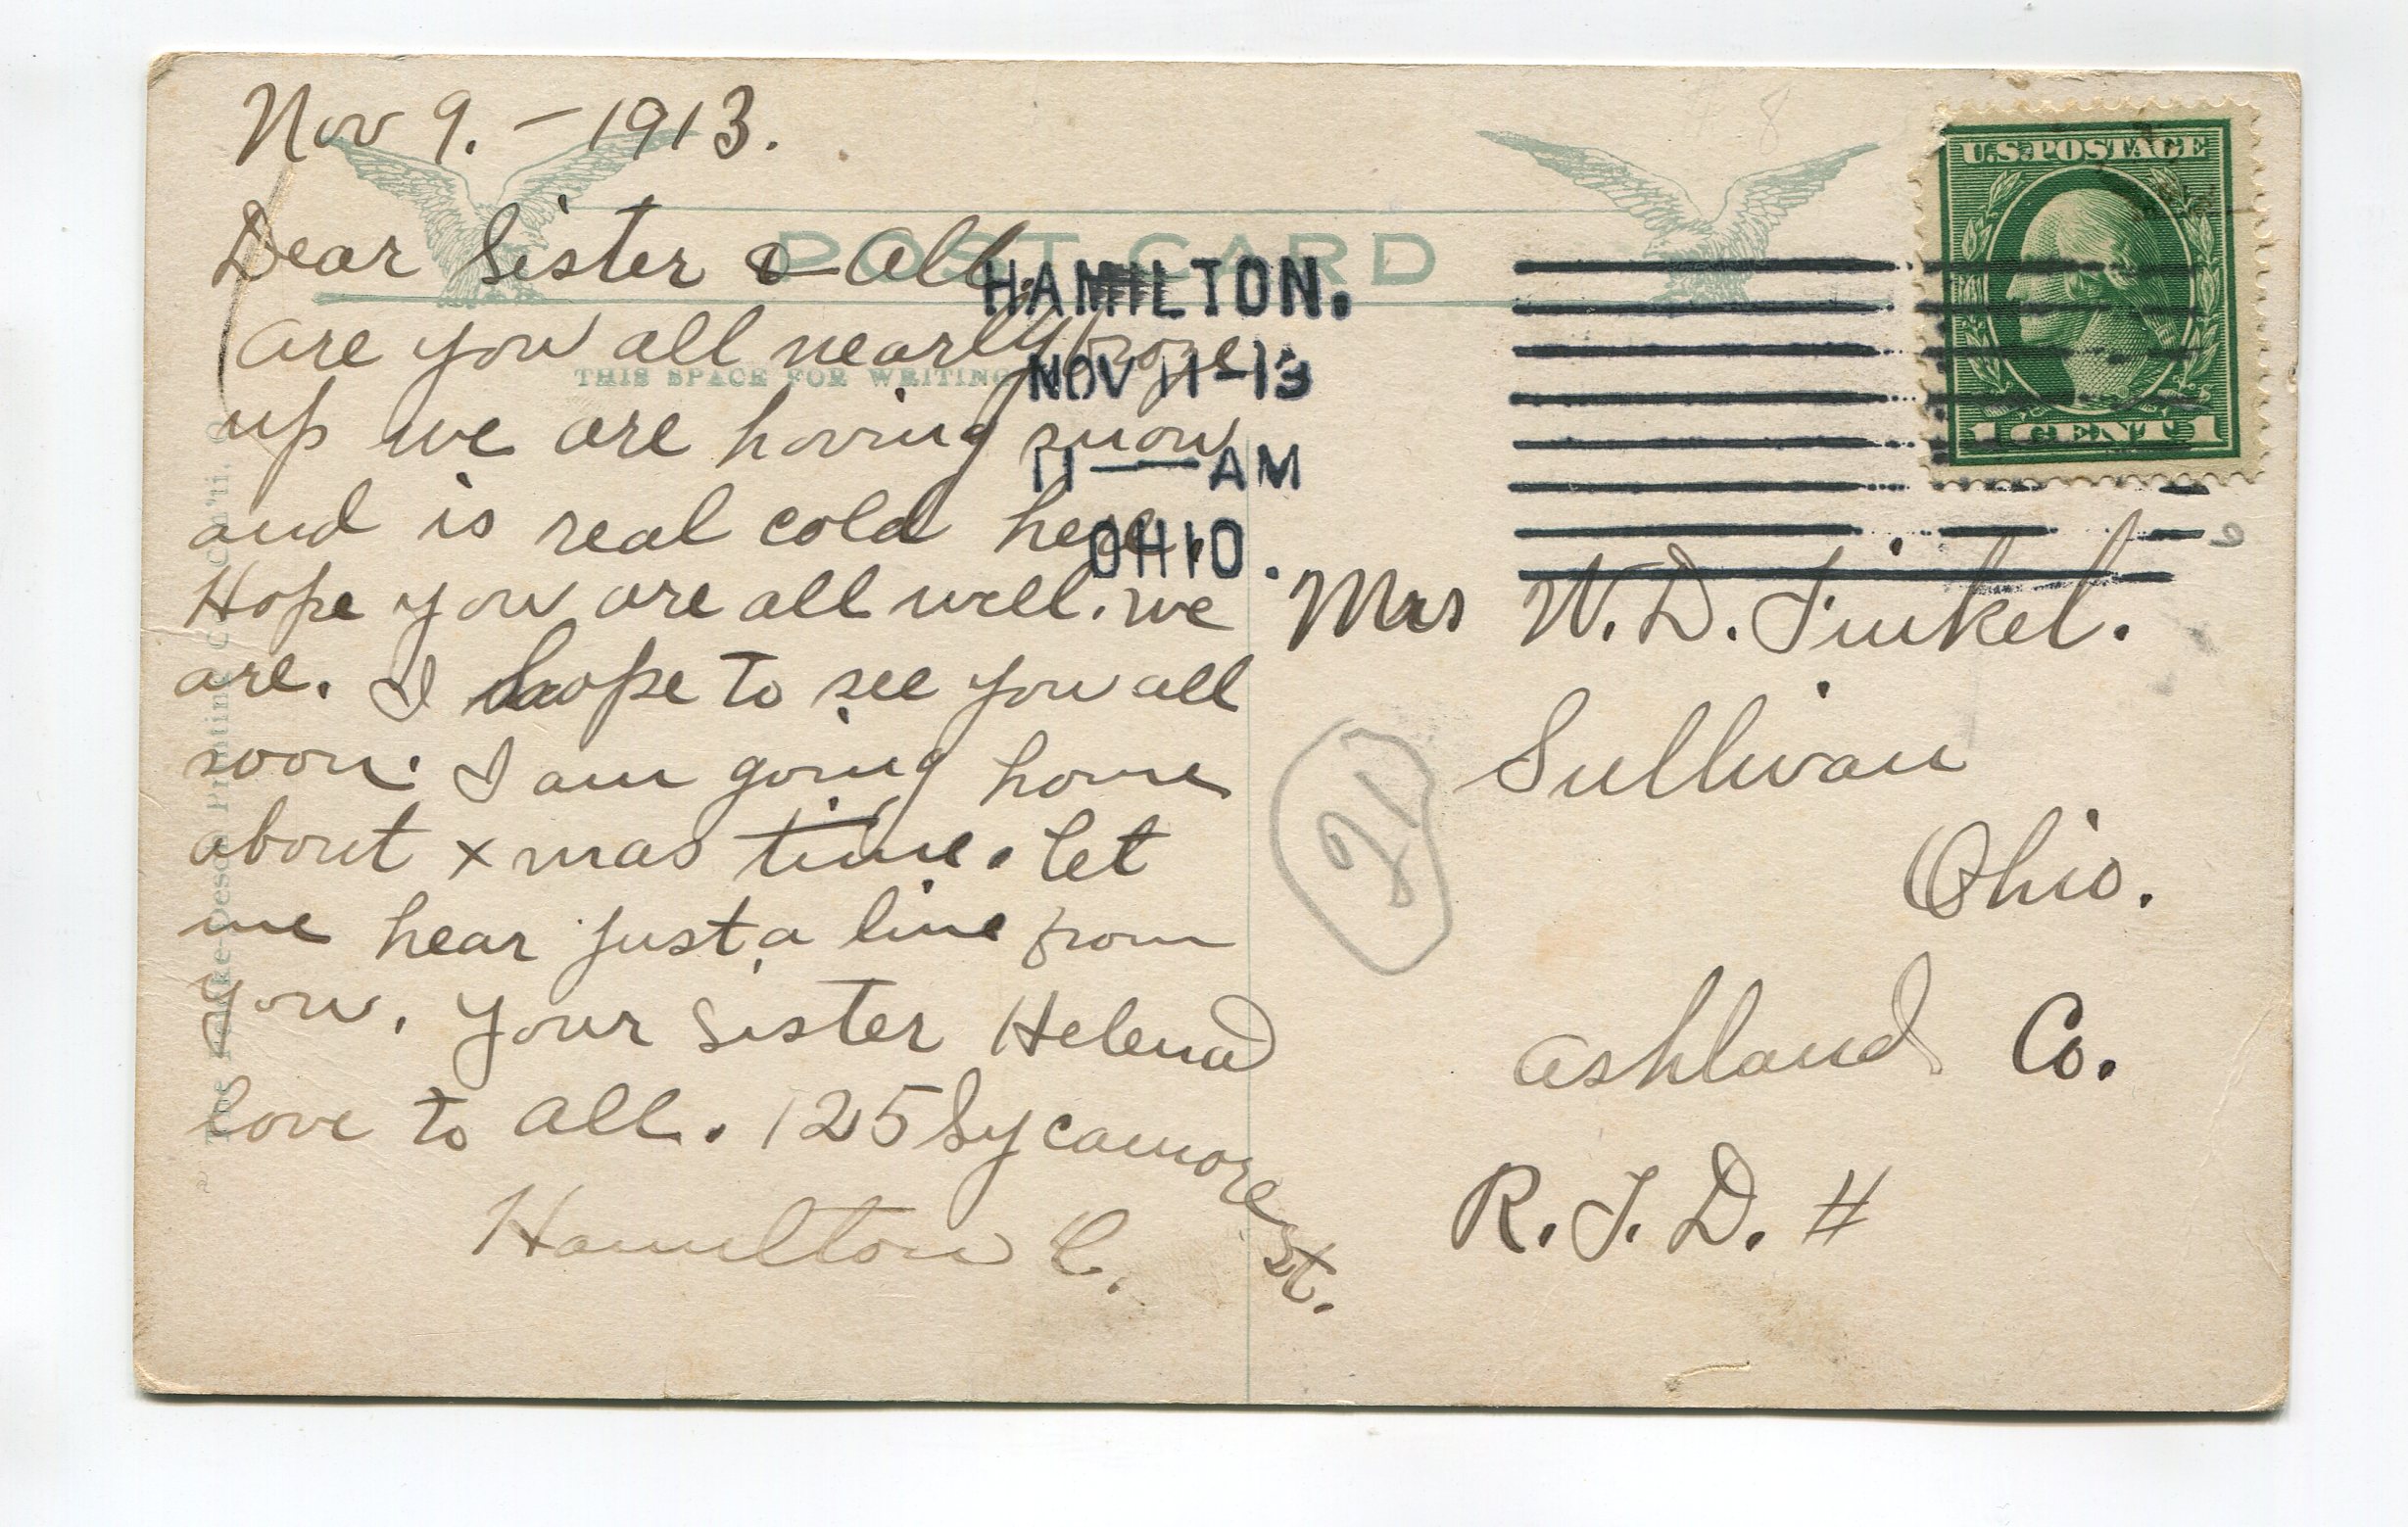 Nov 9. - 1913.
Dear Sister & All.
are you all nearly froze
up we are having snow
and is real cold here.
Hope you are all well. we
are. I hope to see you all
soon. I am going home
about xmas time. let
me hear just a line from
you. your sister Helena
love to all. 125 Sycamore St.
Hamilton O.
POST CARD
THIS SPACE FOR WRITING
HAMILTON.
NOV 11-13
11 — AM
OHIO.
U.S. POSTAGE
1 CENT 1
Mrs W. D. Finkel.
Sullivan
Ohio.
Ashland Co.
R. F. D. #
21
Printing Co.